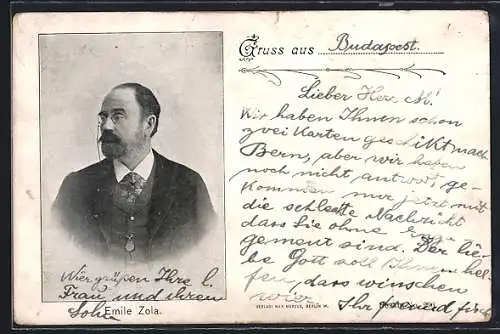 Gruss aus Budapest.
Lieber Herr M!
Wir haben Ihnen schon
zwei Karten geschikt nach
Bern, aber wir haben
noch nicht antwort ge-
kommen nur jetzt mit
die schlechte Nachricht
dass Sie ohne
gement sind. Der lie-
be Gott soll Ihnen hel-
fen, dass winschen
wir Ihr
Wier grüßen Ihre l.
Frau und ihren
Sohn
Emile Zola.
VERLAG MAX MARCUS, BERLIN W.